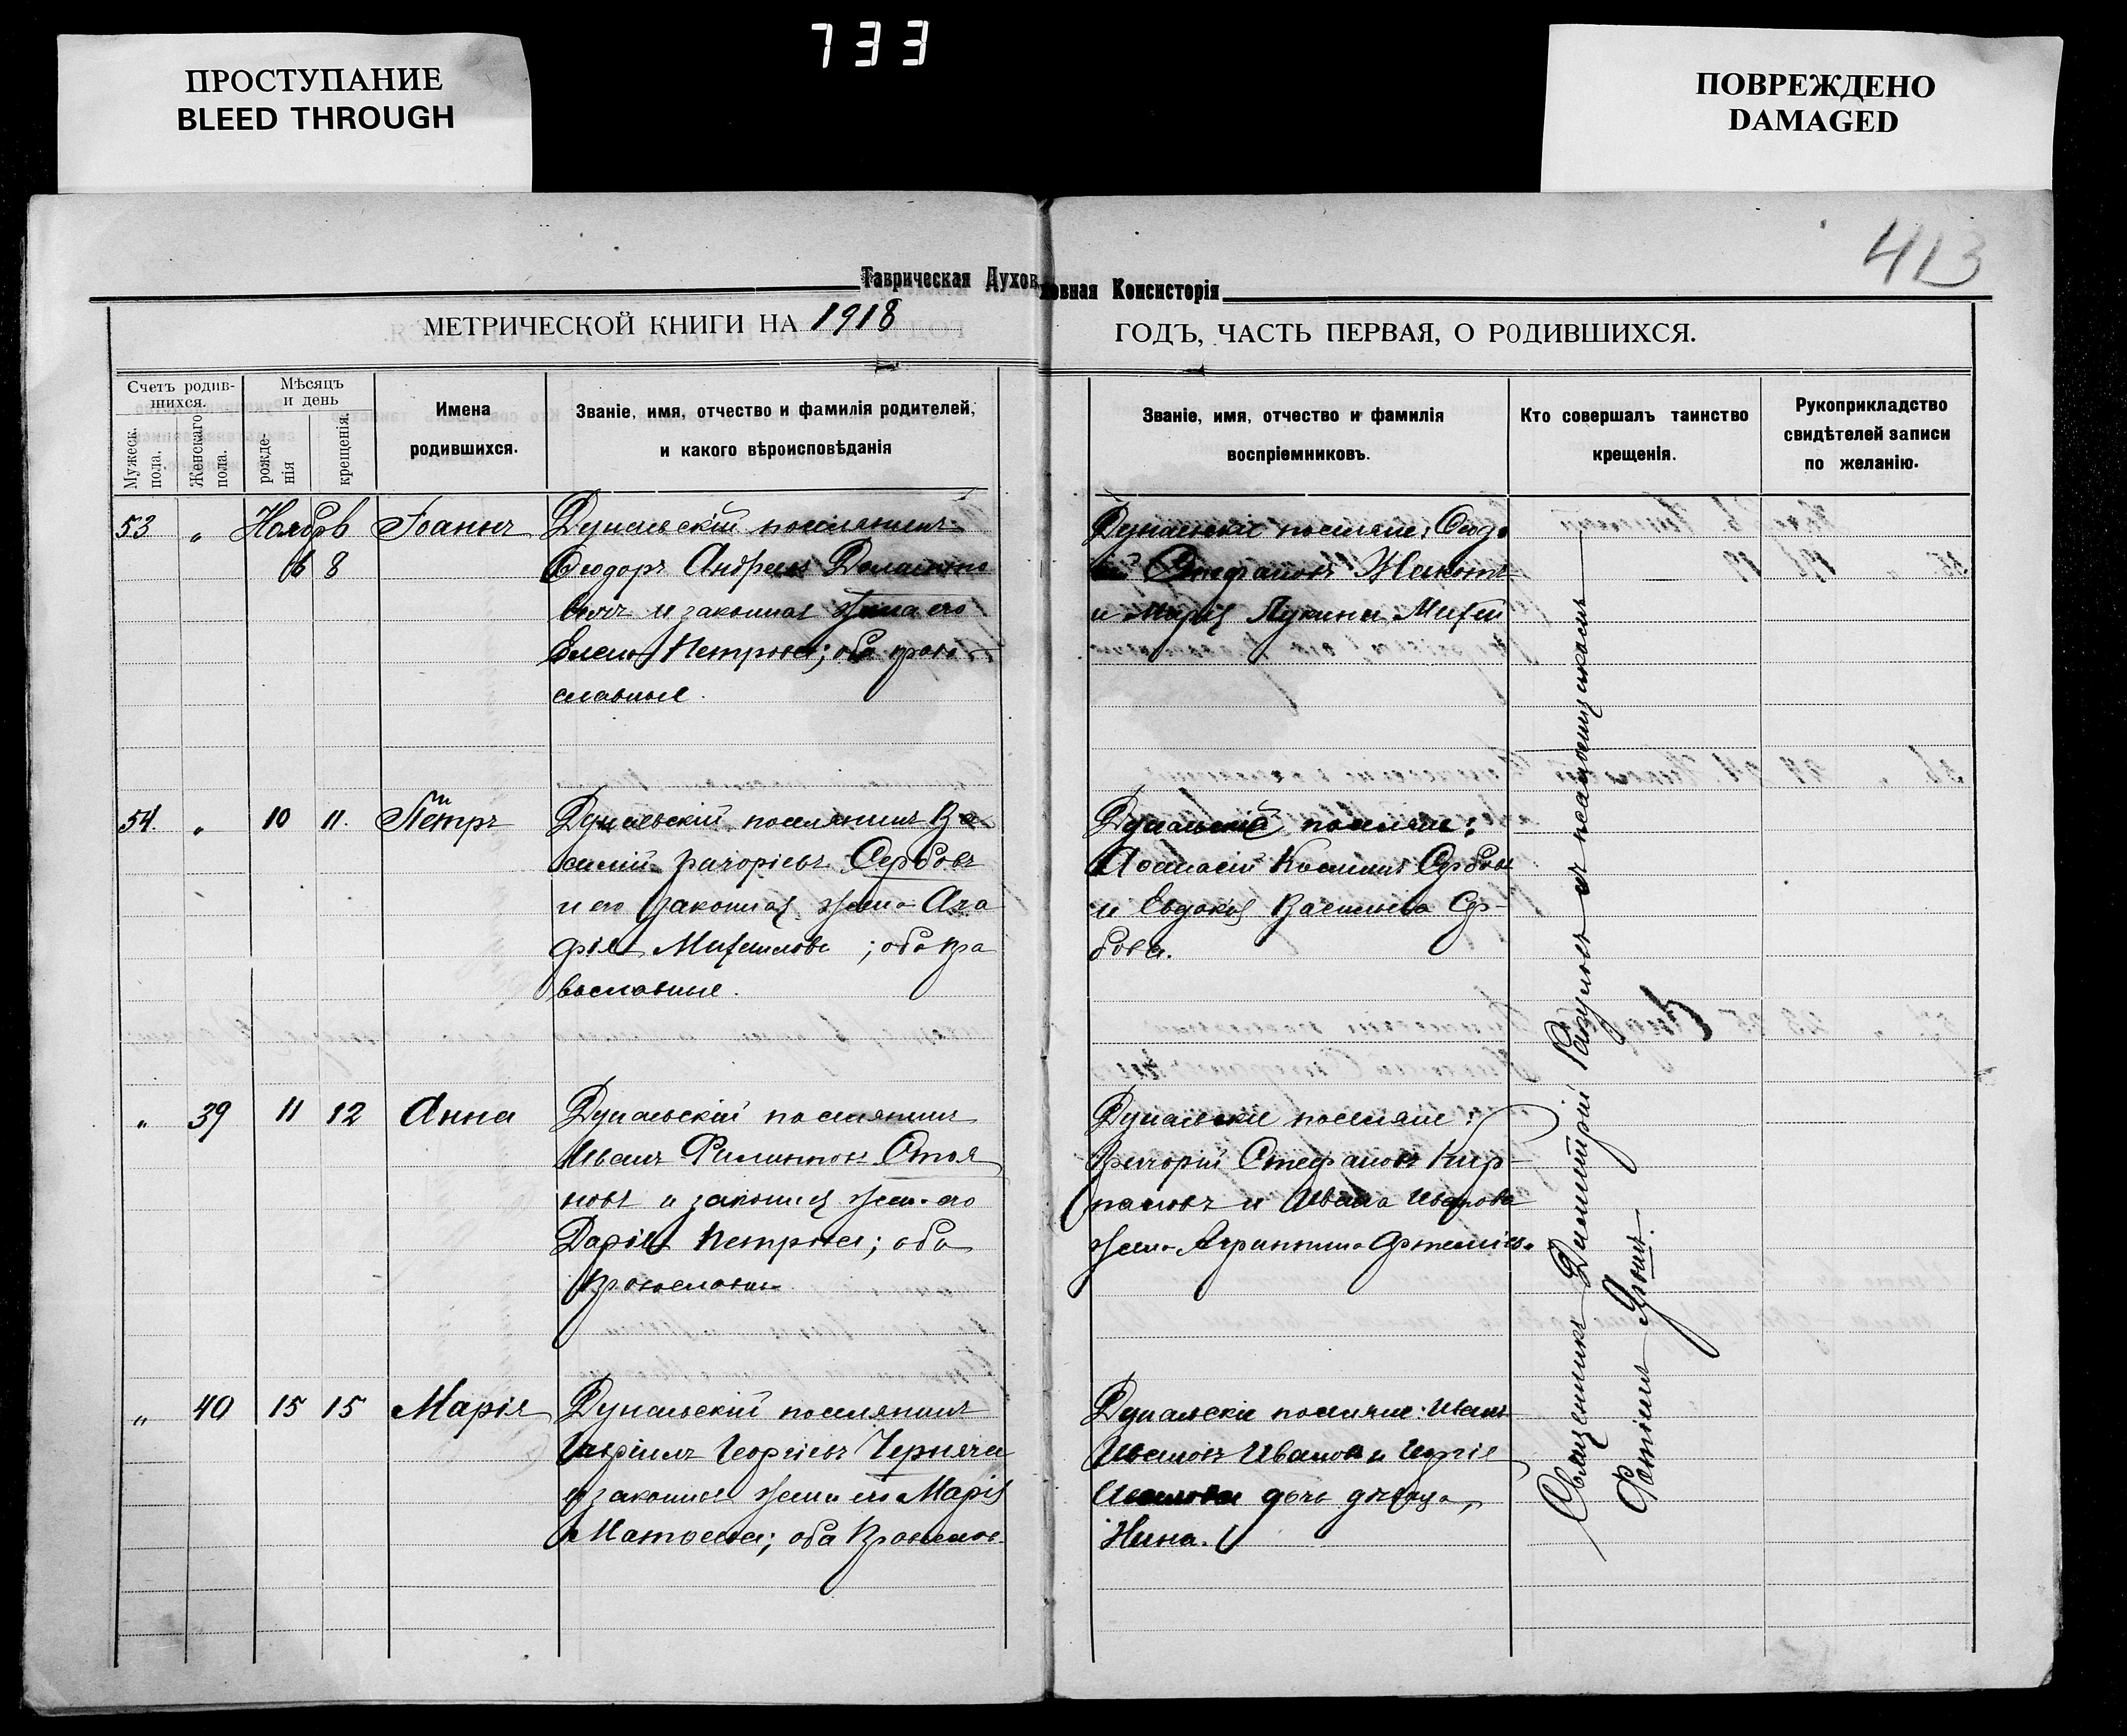 ПРОСТУПАНИЕ
BLEED THROUGH
733
ПОВРЕЖДЕНО
DAMAGED
413
Таврическая Духовная Консисторія
МЕТРИЧЕСКОЙ КНИГИ НА 1918
ГОДЪ, ЧАСТЬ ПЕРВАЯ, О РОДИВШИХСЯ.
Счетъ родив-
шихся.
Мужеск.
пола.
Женскаго
пола.
Мѣсяцъ
и день
рожде-
нія
крещенія.
Имена
родившихся.
Званіе, имя, отчество и фамилія родителей,
и какого вѣроисповѣданія
Званіе, имя, отчество и фамилія
воспріемниковъ.
Кто совершалъ таинство
крещенія.
Рукоприкладство
свидѣтелей записи
по желанію.
53 " Ноябрь Іоаннъ Дунаевскій поселянинъ
6 8 Ѳеодоръ Андреевъ
и законная жена его
Елена Петрова; оба право-
славные.
Дунаевскіе поселяне:
Стефановъ
и Марія Лукина
54. " 10 11. Петръ Дунаевскій поселянинъ Ва-
силій Григоріевъ Сербовъ
и его законная жена Ага
фія Михаилова; оба пра
вославные.
Дунаевскіе поселяне:
Косминъ Сербовъ
и Евдокія Васильева Сер-
бова.
" 39 11 12 Анна Дунаевскій поселянинъ
Иванъ Филипповъ Стоя
новъ и законная жена его
Дарія Петрова; оба
православные
Дунаевскіе поселяне:
Григорій Стефановъ
и Ивана Иванова
жена Агриппина
" 40 15 15 Марія Дунаевскій поселянинъ
Гавріилъ Георгіевъ
и законная жена его Марія
Матѳеева; оба православ.
Дунаевскіе поселяне: Иванъ
Ивановъ Ивановъ и
дочь девица,
Нина.
Священникъ Димитрій съ псаломщикомъ